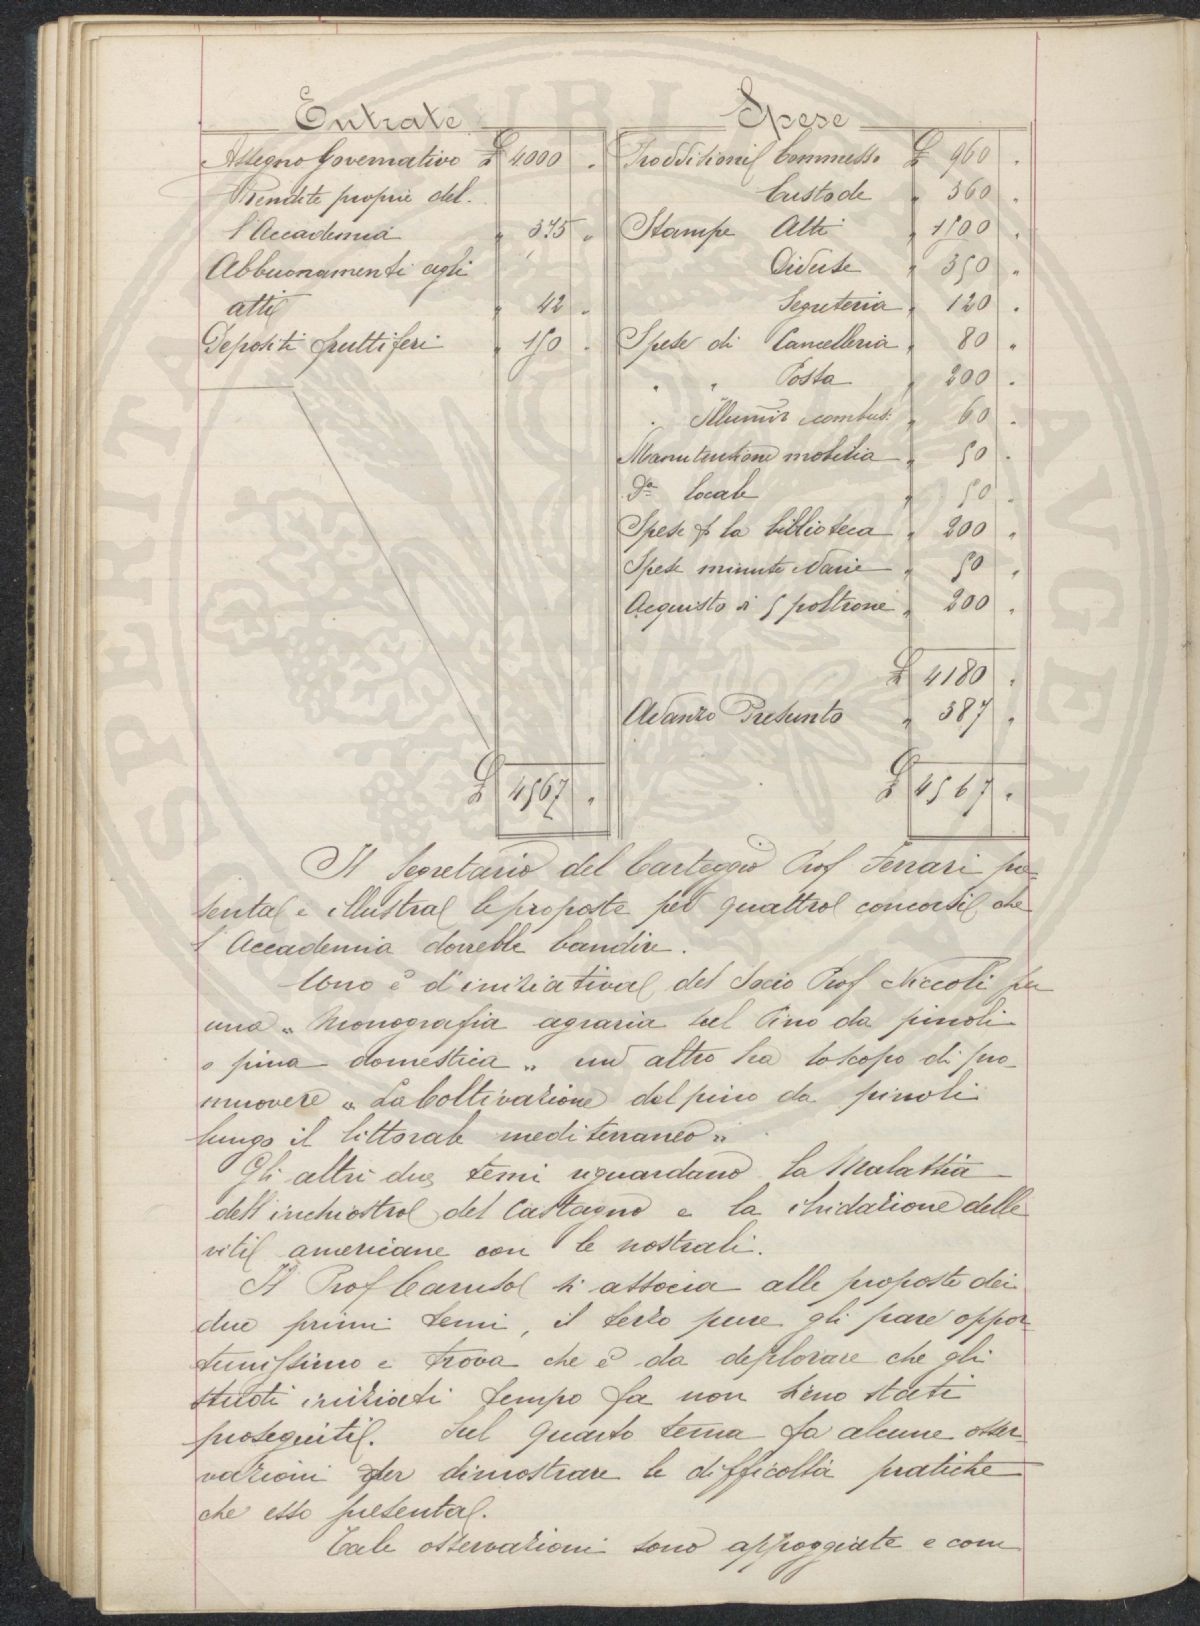 Entrate
Assegno Governativo £ 4000 "
Rendite proprie del-
l'Accademia " 375 "
Abbuonamenti agli
atti " 42 "
Depositi fruttiferi " 150 "
£ 4567 "
Spese
Provvisioni Commesso £ 960 "
Custode " 360 "
Stampe Atti " 1500 "
Diverse " 350 "
Segreteria " 120 "
Spese di Cancelleria " 80 "
" " Posta " 200 "
" Illumin e combust. " 60 "
Manutenzione mobilia " 50 "
Dª locale " 50 "
Spese p la biblioteca " 200 "
Spese minute e Varie " 50 "
Acquisto di 5 poltrone " 200 "
£ 4180 "
Avanzo Presunto " 387 "
£ 4567 "
Il Segretario del Carteggio Prof Ferrari pre=
senta e illustra le proposte per quattro concorsi che
l'Accademia dovrebbe bandire.
Uno è d'iniziativa del Socio Prof Niccoli per
una " Monografia agraria sul Pino da pinoli
o pino domestico " un altro ha lo scopo di pro-
muovere " La Coltivazione del pino da pinoli
lungo il littorale mediterraneo "
Gli altri due temi riguardano la Malattia
dell'inchiostro del Castagno e la ibridazione delle
viti americane con le nostrali.
Il Prof Caruso si associa alle proposte dei
due primi temi, il terzo pure gli pare oppor
tunissimo e trova che è da deplorare che gli
studi iniziati tempo fa non sieno stati
proseguiti. Sul quarto tema fa alcune osser
vazioni per dimostrare le difficoltà pratiche
che esso presenta.
Tale osservazioni sono appoggiate e com
SPERITAS UBI AUGEN